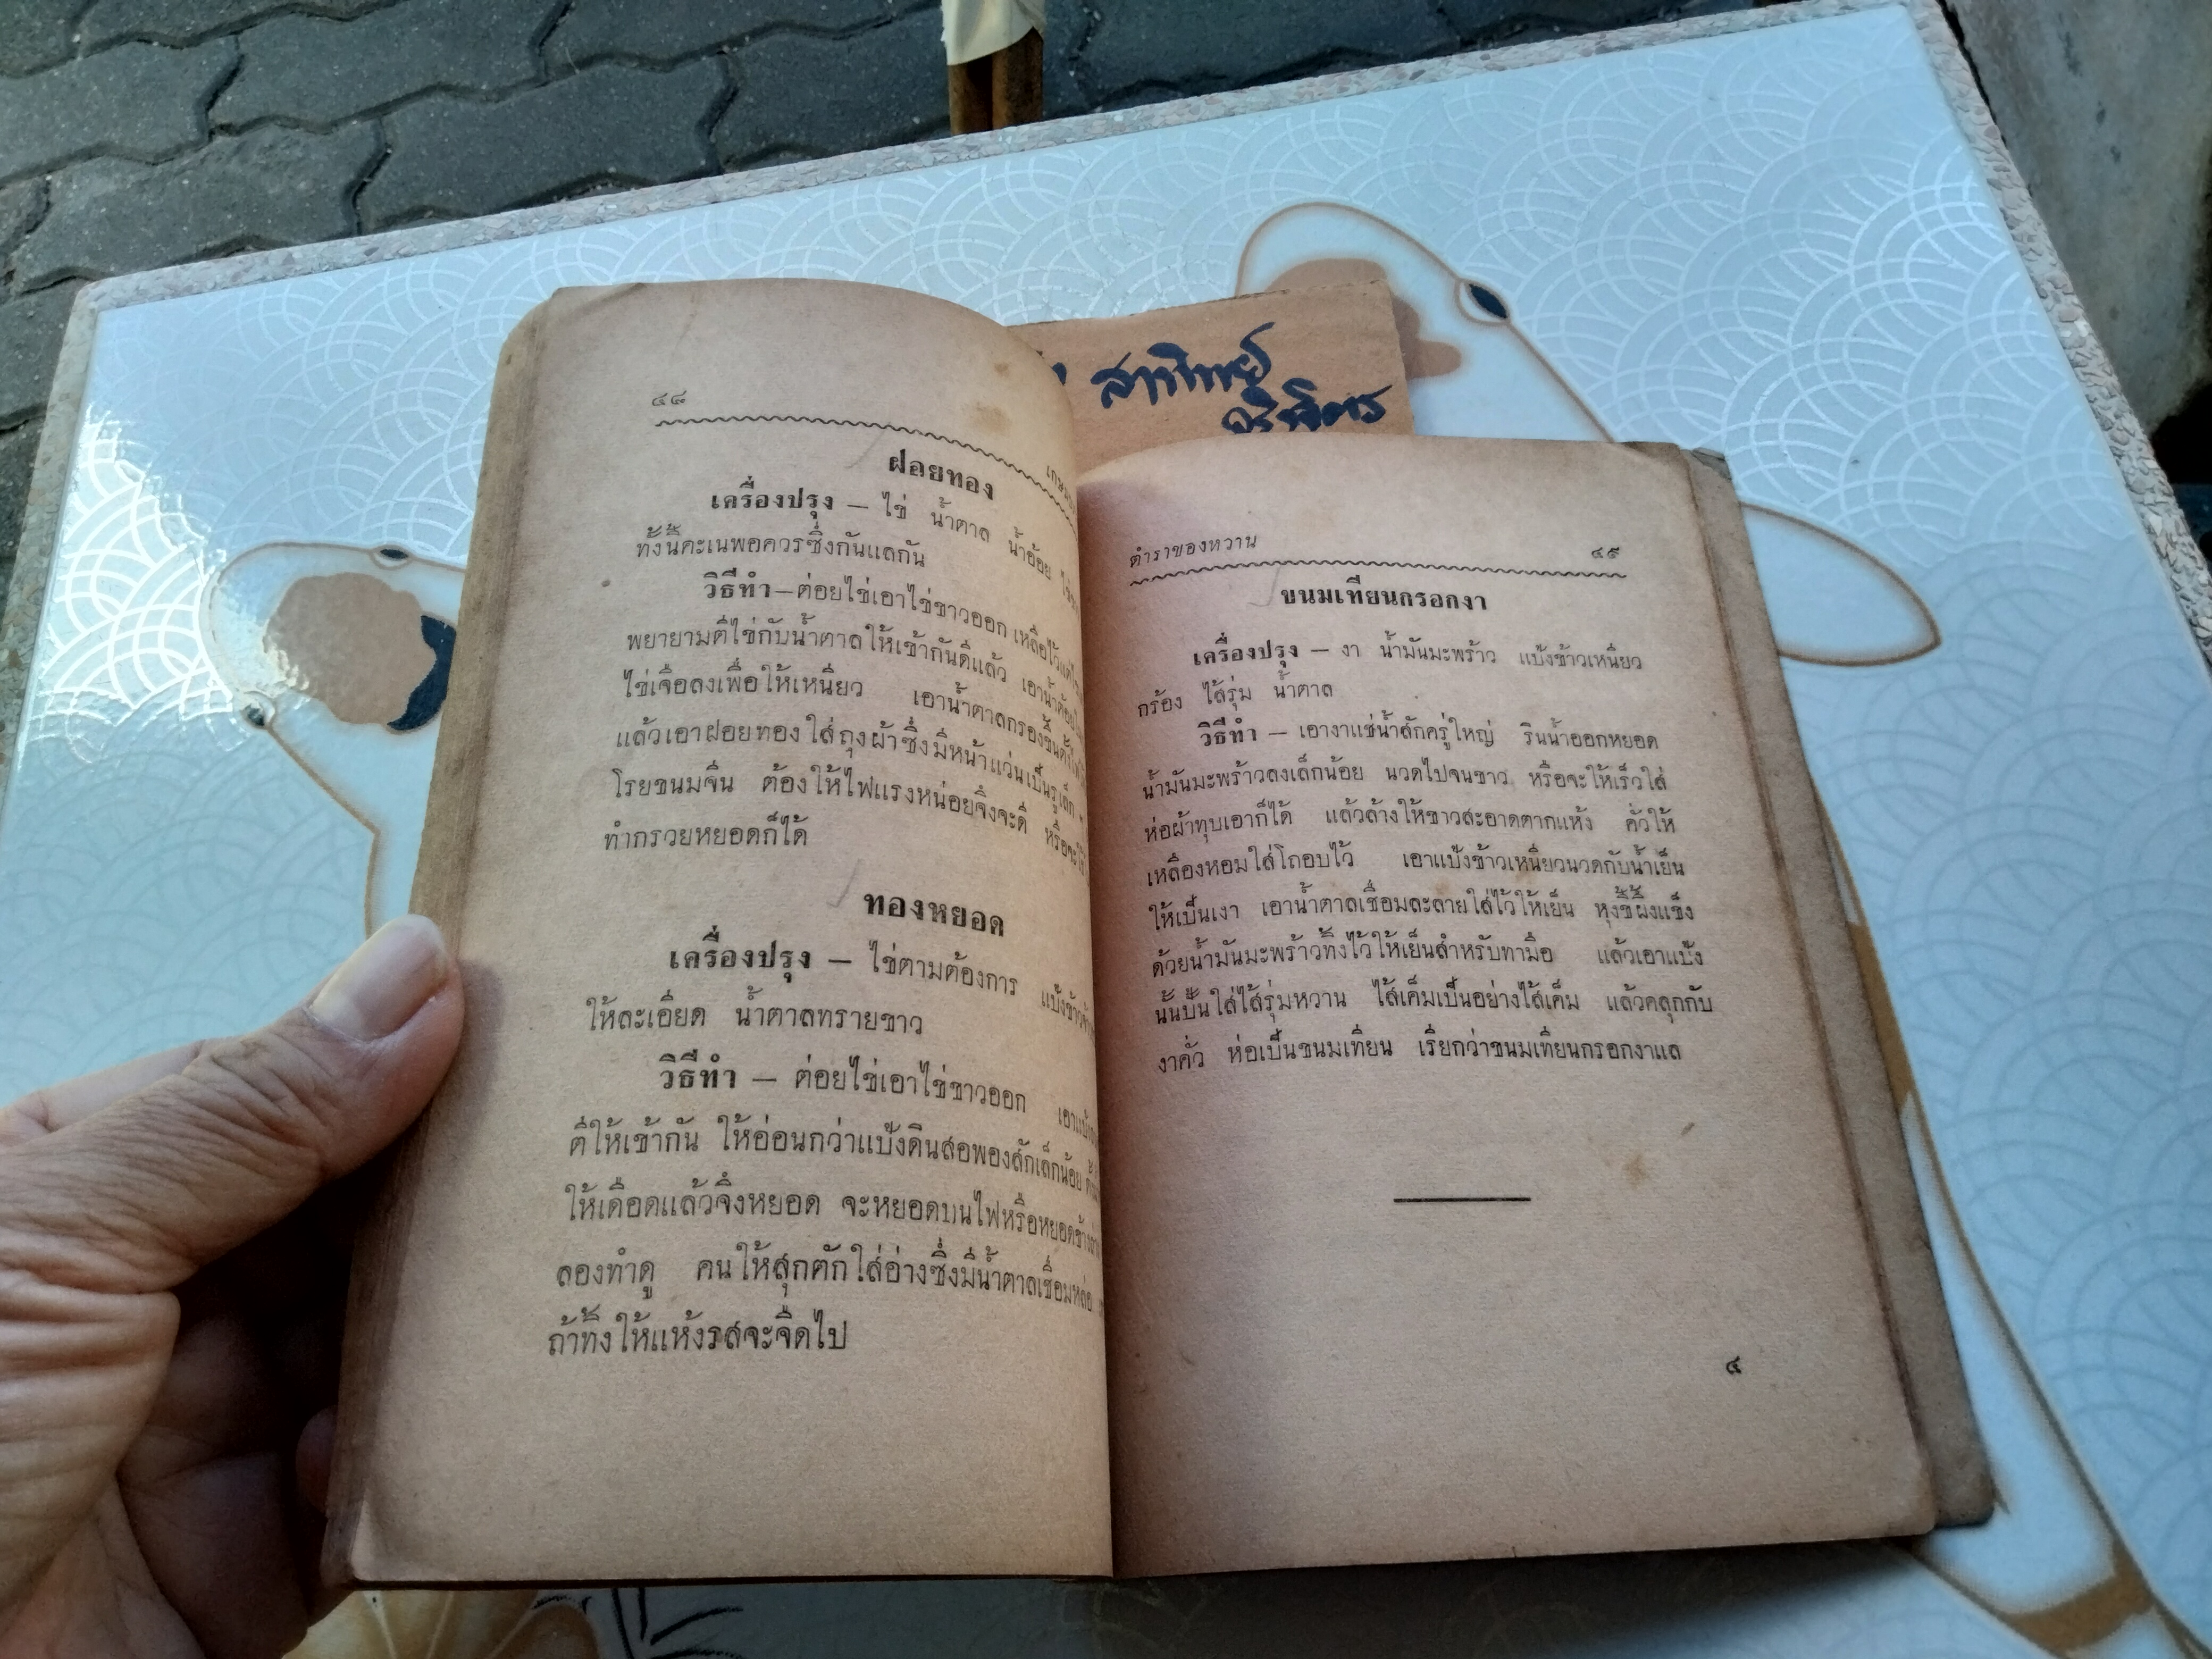 ๔๘
ฝอยทอง
เครื่องปรุง – ไข่ น้ำตาล น้ำอ้อย
ทั้งนี้คะเนพอควรซึ่งกันแลกัน
วิธีทำ—ต่อยไข่เอาไข่ขาวออก เหลือไว้แต่
พยายามตีไข่กับน้ำตาลให้เข้ากันดีแล้ว เอาน้ำ
ไข่เจือลงเพื่อให้เหนียว เอาน้ำตาลกรองขึ้นตั้งไฟ
แล้วเอาฝอยทองใส่ถุงผ้าซึ่งมีหน้าแว่นเป็นรูเล็ก ๆ
โรยขนมจีน ต้องให้ไฟแรงหน่อยจึงจะดี หรือจะใช้
ทำกรวยหยอดก็ได้
ทองหยอด
เครื่องปรุง – ไข่ตามต้องการ แป้งข้าวจ้าว
ให้ละเอียด น้ำตาลทรายขาว
วิธีทำ – ต่อยไข่เอาไข่ขาวออก เอาแป้ง
ตีให้เข้ากัน ให้อ่อนกว่าแป้งดินสอพองสักเล็กน้อย
ให้เดือดแล้วจึงหยอด จะหยอดบนไฟหรือหยอดข้างล่าง
ลองทำดู คนให้สุกตักใส่อ่างซึ่งมีน้ำตาลเชื่อมหล่อ
ถ้าทิ้งให้แห้งรสจะจืดไป
ตำราของหวาน ๔๙
ขนมเทียนกรอกงา
เครื่องปรุง – งา น้ำมันมะพร้าว แป้งข้าวเหนียว
กร้อง ไส้รุ่ม น้ำตาล
วิธีทำ – เอางาแช่น้ำสักครู่ใหญ่ รินน้ำออกหยอด
น้ำมันมะพร้าวลงเล็กน้อย นวดไปจนขาว หรือจะให้เร็วใส่
ห่อผ้าทุบเอาก็ได้ แล้วล้างให้ขาวสะอาดตากแห้ง คั่วให้
เหลืองหอมใส่โถอบไว้ เอาแป้งข้าวเหนียวนวดกับน้ำเย็น
ให้เป็นเงา เอาน้ำตาลเชื่อมละลายใส่ไว้ให้เย็น หุงขี้ผึ้งแข็ง
ด้วยน้ำมันมะพร้าวทิ้งไว้ให้เย็นสำหรับทามือ แล้วเอาแป้ง
นั้นปั้นใส่ไส้รุ่มหวาน ไส้เค็มเป็นอย่างไส้เค็ม แล้วคลุกกับ
งาคั่ว ห่อเป็นขนมเทียน เรียกว่าขนมเทียนกรอกงาแล
๔